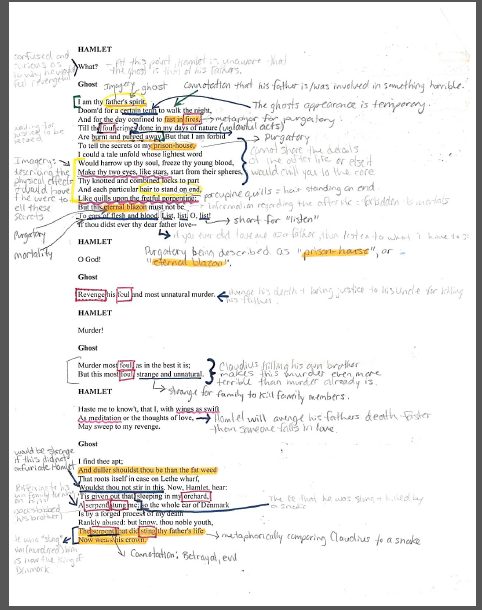 HAMLET
What?
- At this point, Hamlet is unaware that
the ghost is that of his fathers.
confused and
Ghost
Imagery ghost
connotation that his father is/was involved in something horrible.
I am thy father's spirit,
Doom'd for a certain term to walk the night,
The ghosts appearance is temporary.
And for the day confined to fast in fires,
metaphor for purgatory
Till the foul crimes done in my days of nature
(unlawful acts)
Are burnt and purged away. But that I am forbid
Purgatory
To tell the secrets of my prison-house,
cannot share the details
of the after life or else it
would chill you to the core
I could a tale unfold whose lightest word
Would harrow up thy soul, freeze thy young blood,
Make thy two eyes, like stars, start from their spheres,
Thy knotted and combined locks to part
And each particular hair to stand on end,
Like quills upon the fretful porpentine:
porcupine quills = hair standing on end
But this eternal blazon must not be
information regarding the afterlife = forbidden
To ears of flesh and blood. List, list, O, list!
short for "listen"
If thou didst ever thy dear father love--
if you ever did love me as a father then listen to what I have to
Imagery:
describing the
physical effects
these
secrets
Purgatory
mortality
HAMLET
O God!
Purgatory being described as "prison-house", or
"eternal blazon".
Ghost
Revenge his foul and most unnatural murder.
avenge his death + bring justice to his uncle for killing
his father.
HAMLET
Murder!
Ghost
Murder most foul, as in the best it is;
But this most foul, strange and unnatural.
Claudius killing his own brother
makes this murder even more
terrible than murder already is.
strange for family to kill family members.
HAMLET
Haste me to know't, that I, with wings as swift
As meditation or the thoughts of love,
May sweep to my revenge.
Hamlet will avenge his fathers death faster
than someone falls in love.
Ghost
would be strange
if this didnt
infuriate Hamlet
I find thee apt;
And duller shouldst thou be than the fat weed
That roots itself in ease on Lethe wharf,
Wouldst thou not stir in this. Now, Hamlet, hear:
'Tis given out that, sleeping in my orchard,
A serpent stung me; so the whole ear of Denmark
The lie that he was stung + killed by
a snake
Is by a forged process of my death
Rankly abused: but know, thou noble youth,
The serpent that did sting thy father's life
Now wears his crown.
metaphorically comparing Claudius to a snake
Connotation: Betrayal, evil
his brother)
is now the king of
Denmark